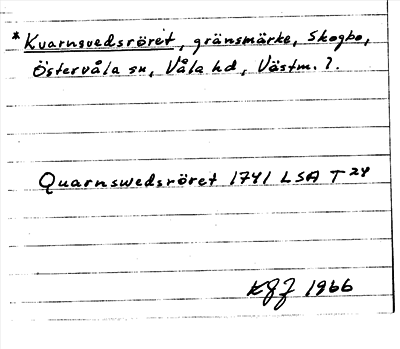 * Kvarnsvedsröret, gränsmärke, Skogbo,
Östervåla sn, Våla hd, Västm. l.
Quarnswedsröret 1741 LSA T 24
KGJ 1966